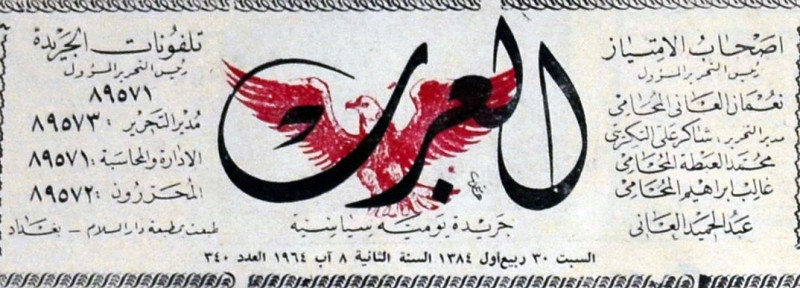 اصحاب الامتياز
رئيس التحرير المسؤول
نعمان العاني المحامي
مدير التحرير: شاكر علي التكريتي
محمد العبطة المحامي
غالب ابراهيم المحامي
عبد الحميد العاني
العرب
جريدة يومية سياسية
تلفونات الجريدة
رئيس التحرير المسؤول
٨٩٥٧١
مدير التحرير : ٨٩٥٧٣
الادارة والمحاسبة : ٨٩٥٧١
المحررون : ٨٩٥٧٢
طبعت بمطبعة دار السلام - بغداد
السبت ٣٠ ربيع أول ١٣٨٤ السنة الثانية ٨ آب ١٩٦٤ العدد ٣٤٠